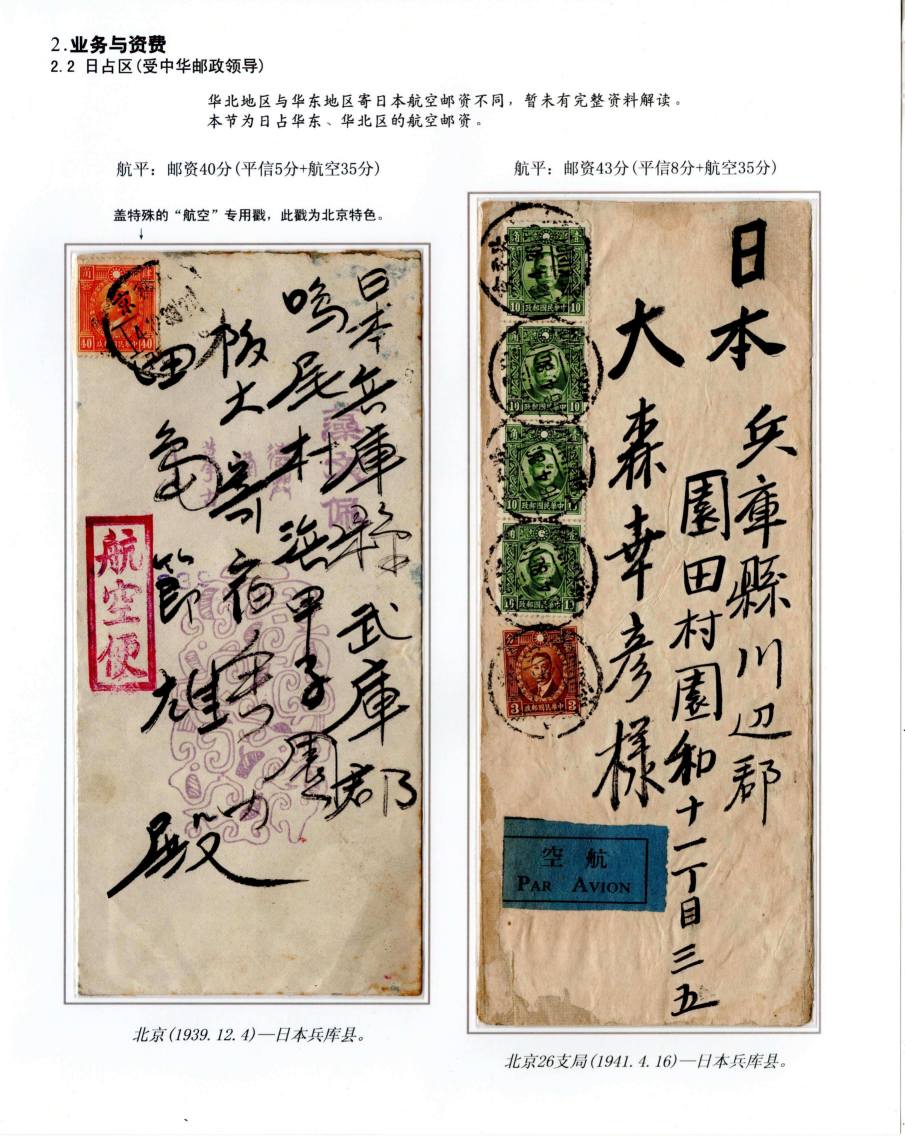 2.业务与资费
2.2 日占区(受中华邮政领导)
华北地区与华东地区寄日本航空邮资不同，暂未有完整资料解读。
本节为日占华东、华北区的航空邮资。
航平：邮资40分(平信5分+航空35分)
盖特殊的“航空”专用戳，此戳为北京特色。
↓
40
40
日本兵庫縣武庫郡
鳴尾村浜甲子園
阪大寄宿舎内
田島節雄
殿
航空便
北京(1939.12.4)—日本兵库县。
航平：邮资43分(平信8分+航空35分)
10
政郵國民華中
10
10
政郵國民華中
10
10
政郵國民華中
政郵國民華中
3
政郵國民華中
3
日本
兵庫縣川辺郡
園田村園和十一丁目三五
大森幸彦様
空航
PAR AVION
北京26支局(1941.4.16)—日本兵库县。